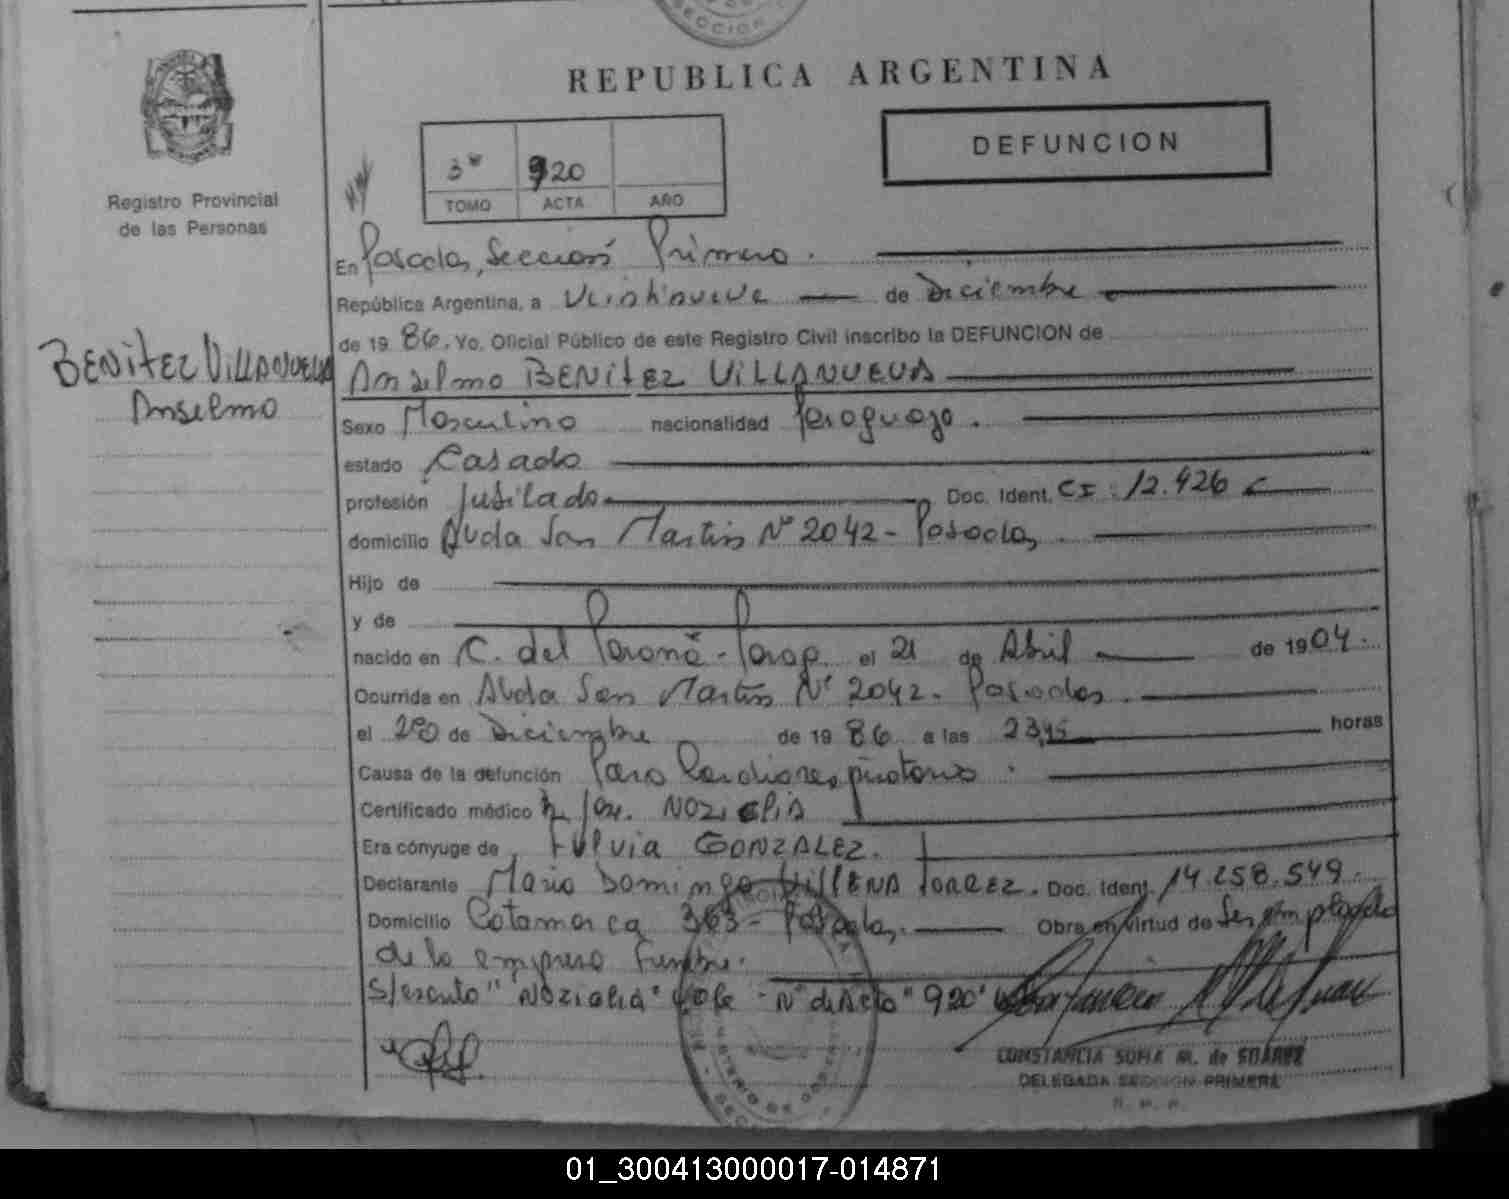 SECCION
REPUBLICA ARGENTINA
DEFUNCION
3º 920
TOMO ACTA AÑO
Registro Provincial
de las Personas
En Posadas, Sección Primera.
República Argentina, a Veintinueve de Diciembre
de 19 86. Yo, Oficial Público de este Registro Civil inscribo la DEFUNCION de
BENITEZ VILLANUEVA
Anselmo
Anselmo BENITEZ VILLANUEVA
Sexo Masculino nacionalidad Paraguaya.
estado Casado
profesión Jubilado Doc. Ident. CI: 12.426
domicilio Avda San Martín Nº 2042 - Posadas
Hijo de
y de
nacido en C. del Paraná - Parag. el 21 de Abril de 1904.
Ocurrida en Avda San Martín Nº 2042. Posadas.
el de Diciembre de 19 86 a las 23,45 horas
Causa de la defunción Paro Cardiorespiratorio.
Certificado médico NOZIGLIA
Era cónyuge de Fulvia GONZALEZ.
Declarante Mario Domingo VILLENA TORREZ. Doc. Ident. 14.258.549.
Domicilio Catamarca 363 - Posadas. Obra en virtud de Ser empleado
de la empresa Fúnebre.
S/escrito "Noziglia" Vale - Nº de Acta "920"
CONSTANCIA SOFIA M. de SUAREZ
DELEGADA SECCION PRIMERA
R. P. P.
01_300413000017-014871